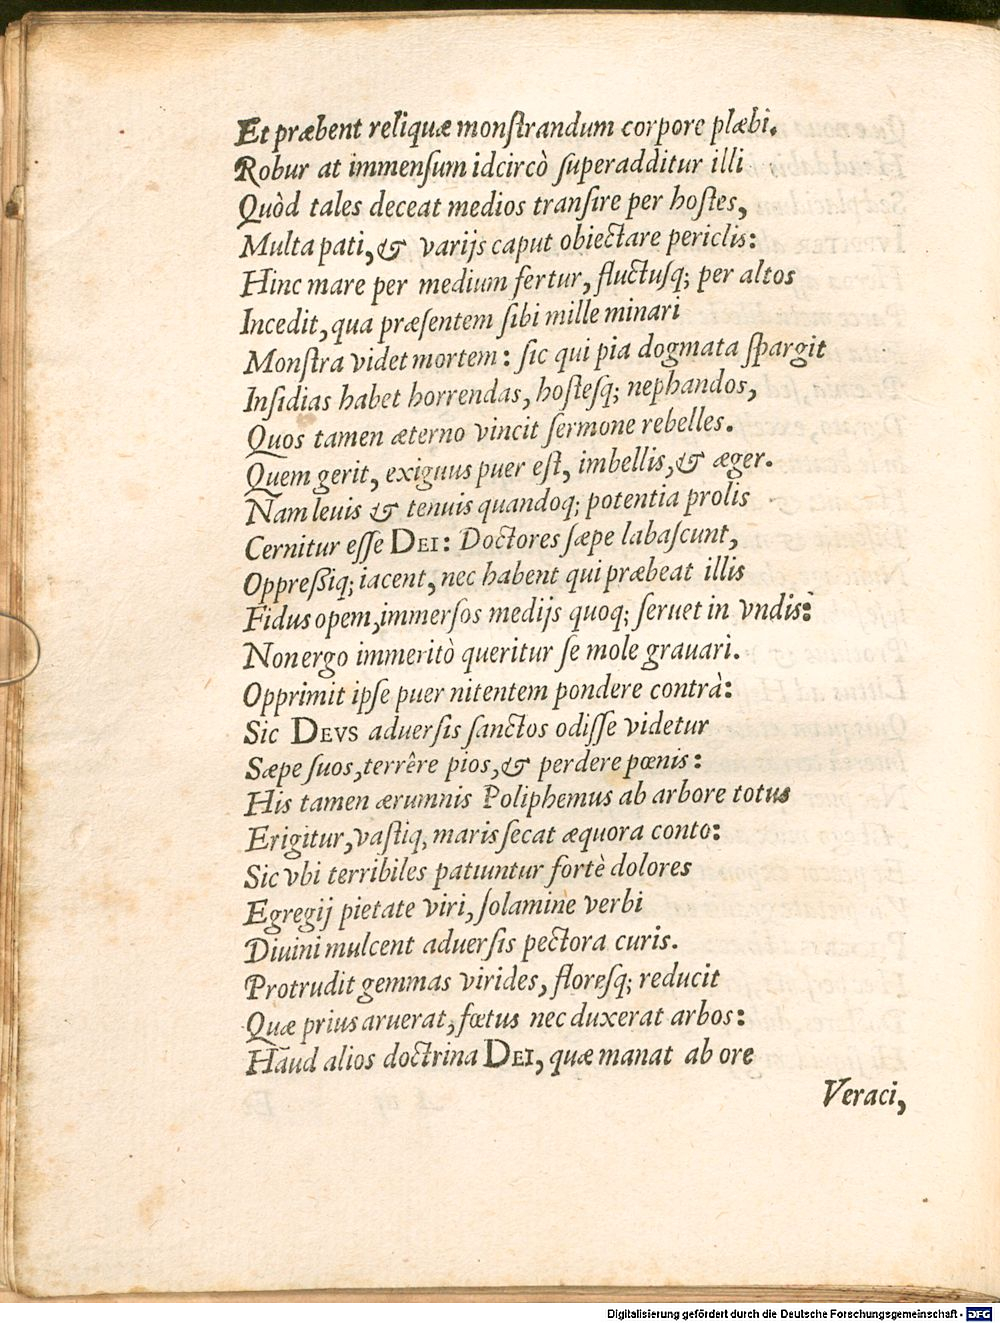 Et præbent reliquæ monſtrandum corpore plæbi.
Robur at immenſum idcircò ſuperadditur illi
Quòd tales deceat medios tranſire per hoſtes,
Multa pati, & varijs caput obiectare periclis:
Hinc mare per medium fertur, fluctuſq; per altos
Incedit, qua præſentem ſibi mille minari
Monſtra videt mortem: ſic qui pia dogmata ſpargit
Inſidias habet horrendas, hoſteſq; nephandos,
Quos tamen æterno vincit ſermone rebelles.
Quem gerit, exiguus puer eſt, imbellis, & æger.
Nam leuis & tenuis quandoq; potentia prolis
Cernitur eſſe DEI: Doctores ſæpe labaſcunt,
Oppreſsiq; iacent, nec habent qui præbeat illis
Fidus opem, immerſos medijs quoq; ſeruet in vndis:
Non ergo immeritò queritur ſe mole grauari.
Opprimit ipſe puer nitentem pondere contrà:
Sic DEVS aduerſis ſanctos odiſſe videtur
Sæpe ſuos, terrêre pios, & perdere pœnis:
His tamen ærumnis Poliphemus ab arbore totus
Erigitur, vaſtiq, maris ſecat æquora conto:
Sic vbi terribiles patiuntur fortè dolores
Egregij pietate viri, ſolamine verbi
Diuini mulcent aduerſis pectora curis.
Protrudit gemmas virides, floreſq; reducit
Quæ prius aruerat, fœtus nec duxerat arbos:
Haud alios doctrina DEI, quæ manat ab ore
Veraci,
Digitalisierung gefördert durch die Deutsche Forschungsgemeinschaft - DFG